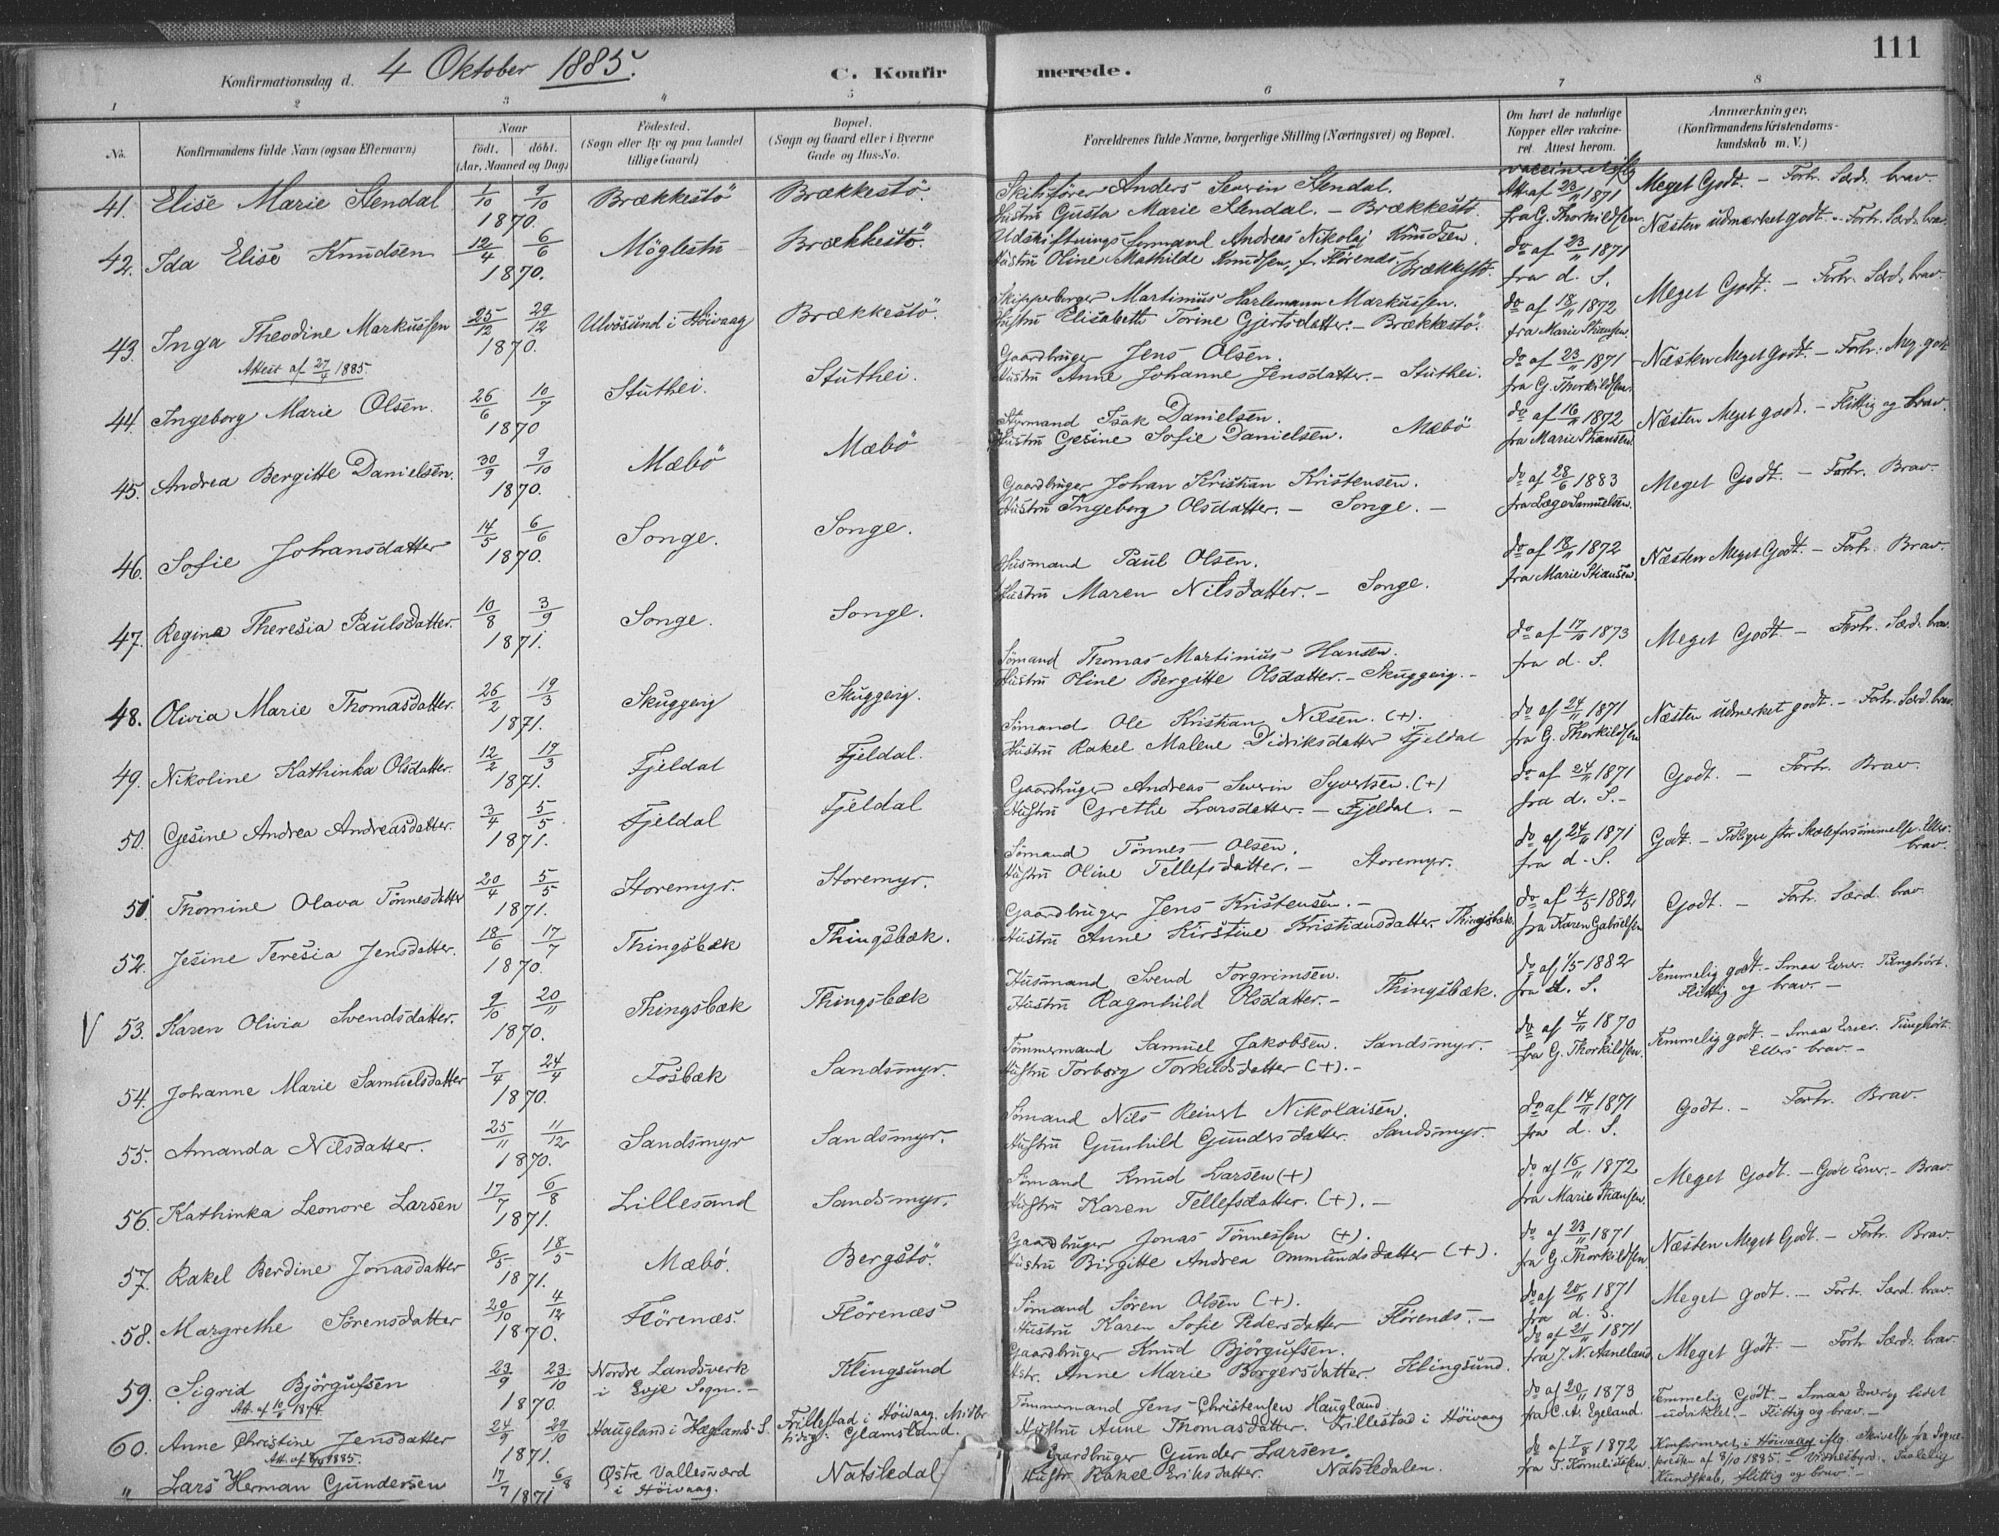 111
Konfirmationsdag d. 4 Oktober 1885.
C. Konfirmerede.
1 2 3 4 5 6 7 8
No.
Konfirmandens fulde Navn (ogsaa Efternavn)
Naar
født. døbt.
(Aar, Maaned og Dag)
Fødested.
(Sogn eller By og paa Landet
tillige Gaard)
Bopæl.
(Sogn og Gaard eller i Byerne
Gade og Hus-No.
Forældrenes fulde Navne, borgerlige Stilling (Næringsvei) og Bopæl.
Om havt de naturlige
Kopper eller vakcine-
ret. Attest herom.
Anmærkninger,
(Konfirmandens Kristendoms-
kundskab m. V.)
41. Elise Marie Stendal 1/10 9/10 Brækkestö Brækkestö. Skibsförer Anders Severin Stendal. Att. af 23/11 1871 Meget Godt. – Forh. Særd. brav.
1870. Hustru Gusta Marie Stendal. – Brækkestö. fra G. Thorkildsen
42. Ida Elise Knudsen 12/4 6/6 Möglestu Brækkestö. Udskiftningsformand Andreas Nikolaj Knudsen. do af 23/11 1871 Næsten udmærket godt. – Forh. Særd. brav
1870. Hustru Oline Mathilde Knudsen, f. Flörenæs. Brækkestö. fra d. S.
43. Inga Theodine Markussen 25/12 29/12 Ulvösund i Höivaag Brækkestö. Skipperborger Martinius Harlemann Markussen. do af 18/11 1872 Meget Godt. – Forh. Særd. brav.
Attest af 27/4 1885. 1870. Hustru Elisabeth Torine Gjertsdatter. – Brækkestö. fra Marie Stiansen.
44. Ingeborg Marie Olsen. 26/6 10/7 Stuthei. Stuthei. Gaardbruger Jens Olsen. do af 23/11 1871 Næsten Meget Godt. – Forh. Meg. godt
1870 Hustru Anne Johanne Jensdatter. – Stuthei. fra G. Thorkildsen.
45. Andrea Bergitte Danielsen. 30/9 9/10 Mæbö Mæbö Styrmand Isak Danielsen. do af 16/11 1872 Næsten Meget godt. – Flittig og brav.
1870. Hustru Gesine Sofie Danielsen. Mæbö fra Marie Stiansen.
46. Sofie Johansdatter 14/5 6/6 Songe. Songe. Gaardbruger Johan Kristian Kristensen. do af 28/6 1883 Meget Godt. – Forh. Brav.
1870. Hustru Ingeborg Olsdatter. – Songe. – fra Læge Samuelsen.
47. Regina Theresia Paulsdatter. 10/8 3/9 Songe. Songe. Husmand Paul Olsen. do af 18/11 1872 Næsten Meget Godt. – Forh. Brav.
1871. Hustru Maren Nilsdatter. – Songe. fra Marie Stiansen.
48. Olivia Marie Thomasdatter. 26/2 19/3 Skuggevig Skuggevig. Sömand Thomas Martinius Hansen. do af 17/10 1873 Meget Godt. – Forh. Særd. brav.
1871. Hustru Oline Bergitte Olsdatter. – Skuggevig. – fra d. S.
49. Nikoline Kathinka Olsdatter. 12/2 19/3 Fjeldal Fjeldal. Sömand Ole Kristian Nilsen. (+) do af 24/11 1871 Næsten udmerket godt. – Forh. Særd. brav.
1871. Hustru Rakel Malene Didriksdatter Fjeldal fra G. Thorkildsen
50. Gesine Andrea Andreasdatter. 3/4 5/5 Fjeldal Fjeldal Gaardbruger Andreas Severin Syvertsen. (+) do af 24/11 1871 Godt. – Forh. Brav.
1871. Hustru Grethe Larsdatter. – Fjeldal. – fra d. S. –
51 Thomine Olava Tönnesdatter 20/4 5/5 Storemyr. Storemyr. Sömand Tönnes Olsen. do af 24/11 1871 Godt. – Tidligere stor Skoleforsömmelse. Ellers
1871. Hustru Oline Tellefsdatter. – Storemyr. fra d. S. brav.
52. Jesine Teresia Jensdatter. 18/6 17/7 Thingsbæk Thingsbæk. Gaardbruger Jens Kristensen. – do af 4/5 1882 Godt. – Forh. Særd. brav
1870. Hustru Anne Kirstine Kristiansdatter. Thingsbæk. fra Karen Gabrielsen
V 53. Karen Olivia Svendsdatter. 9/10 20/11 Thingsbæk Thingsbæk Husmand Svend Torgrimsen. do af 1/5 1882 Temmelig godt. – Smaa Evner. Tunghört.
1870. Hustru Ragnhild Olsdatter. – Thingsbæk. fra d. S. Flittig og brav. –
54. Johanne Marie Samuelsdatter 7/4 24/4 Fosbæk Sandsmyr. Tömmermand Samuel Jakobsen. Sandsmyr. do af 4/11 1870 Temmelig godt. – Smaa Evner. Tunghört.
1870. Hustru Torborg Torkildsdatter (+). – fra G. Thorkildsen. Ellers brav. –
55. Amanda Nilsdatter. 25/11 11/12 Sandsmyr Sandsmyr. Sömand Nils Reinert Nikolaisen. do af 14/11 1871 Godt. – Forh. Brav.
1870. Hustru Gunhild Gundersdatter. Sandsmyr. fra d. S.
56. Kathinka Leonore Larsen 17/7 6/8 Lillesand Sandsmyr. Sömand Knud Larsen (+) do af 16/11 1872 Meget Godt. – Gode Evner. – Brav.
1871. Hustru Karen Tellefsdatter. (+). – fra Marie Stiansen.
57. Rakel Berdine Jonasdatter 6/5 18/5 Mæbö. Bergstö. Gaardbruger Jonas Tönnessen (+). do af 23/11 1871 Næsten Meget Godt. – Forh. Brav.
1871. Hustru Birgitte Andrea Ommundsdatter (+). fra G. Thorkildsen
58. Margrethe Sörensdatter 20/10 4/12 Flörenæs. Flörenæs Sömand Sören Olsen (+). do af 20/11 1871 Meget godt. – Forh. Særd. brav.
1870. Hustru Karen Sofie Pedersdatter Flörenæs. – fra d. S.
59. Sigrid Björgufsen 23/9 23/10 Nordre Landsverk Klingsund Gaardbruger Knud Björgufsen. do af 21/11 1871 Meget Godt – Forh. Særd. brav
1870. i Evje Sogn. – Hustr. Anne Marie Borgersdatter. Klingsund. fra J. N. Aaneland
60. Anne Christine Jensdatter 24/9 29/10 Haugland i Hæglands S. Frillestad i Höivaag. Tömmermand Jens Christensen Haugland. do af 20/11 1873 Temmelig Godt. – Smaa Evner, lidet
1871. Glamsland. Hustru Anne Thomasdatter. Frillestad i Höivaag fra C. A. Egeland. udviklet. – Flittig og brav. –
" Lars Herman Gundersen 17/7 6/8 Østre Vallesværd Natsledal Gaardbruger Gunder Larsen. do af 7/8 1872 Konfirmeret i Höivaag iflg. Skrivelse fra Sogne-
1871 i Höivaag. Hustr. Rakel Eriksdatter. Natsledalen. fra T. Kornelius­sen præsten af 8/10 1885. –
Kundskab, flittig og brav. –